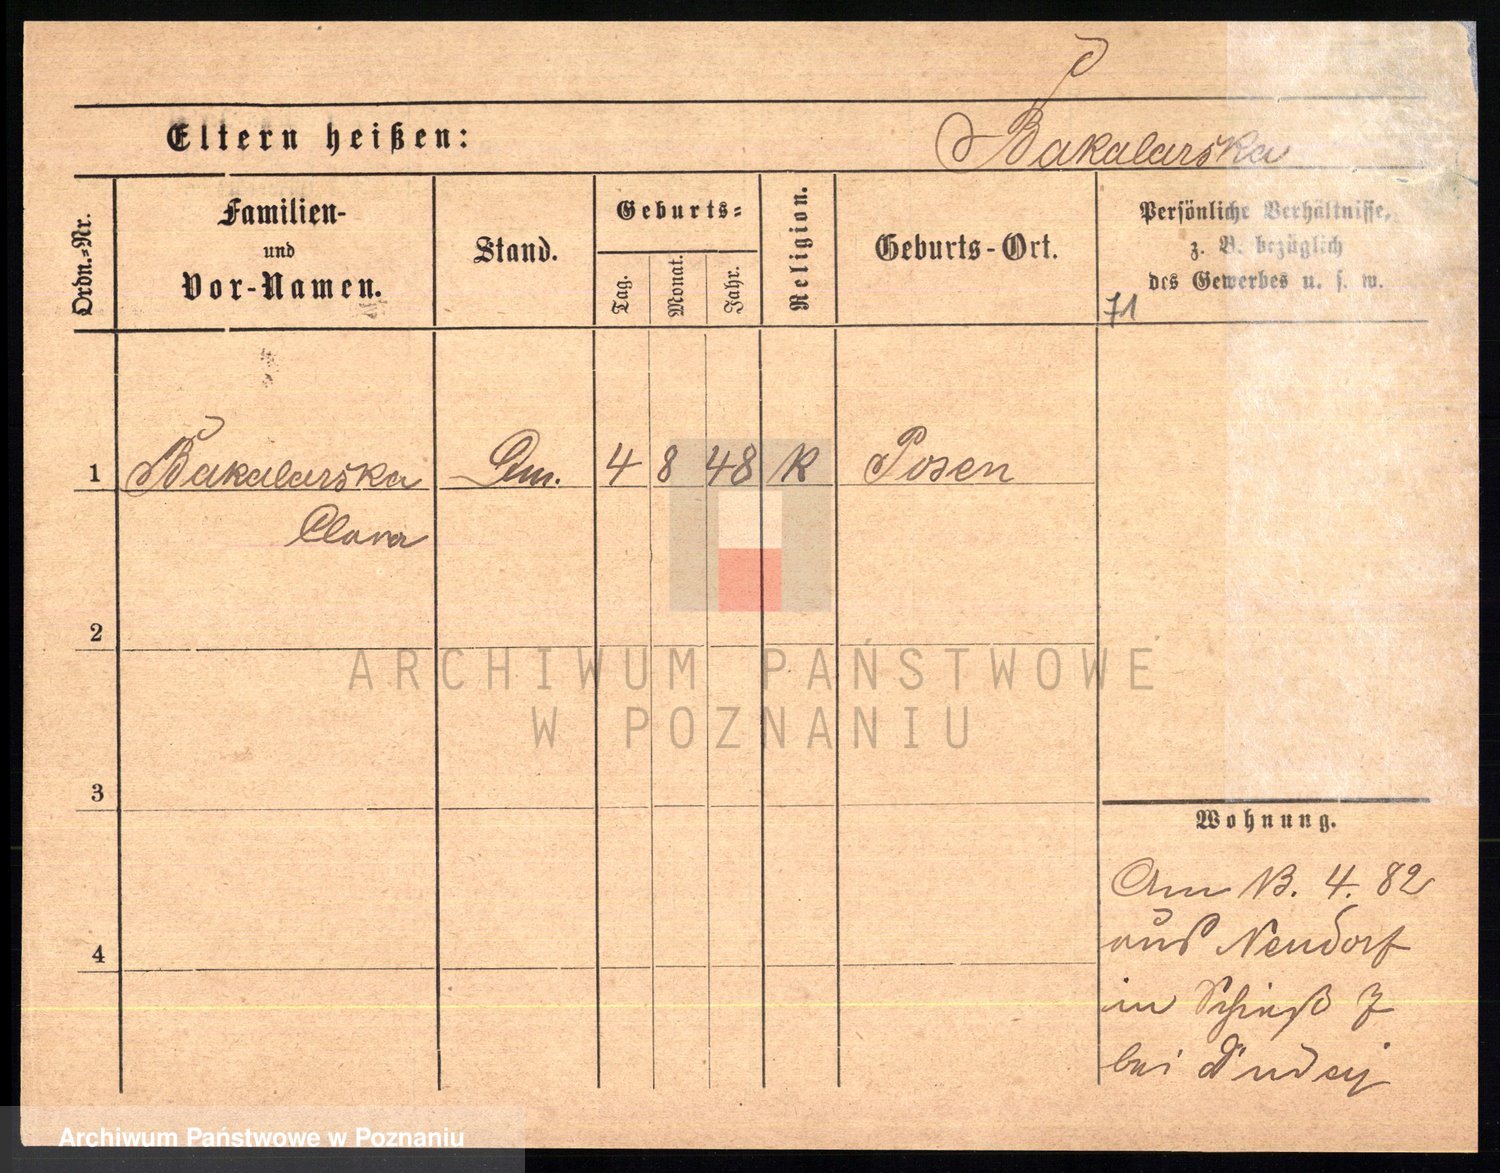 Eltern heißen: Bakalarska
Ordn.-Nr.
Familien-
und
Vor-Namen.
Stand.
Geburts-
Tag.
Monat.
Jahr.
Religion.
Geburts-Ort.
Persönliche Verhältnisse,
z. B. bezüglich
des Gewerbes u. s. w.
71
1 Bakalarska 4 8 48 K Posen
Clara
2
3
4
Wohnung.
Am 13. 4. 82
aus Neudorf
in Schieß 7
bei
ARCHIWUM PAŃSTWOWE
W POZNANIU
Archiwum Państwowe w Poznaniu